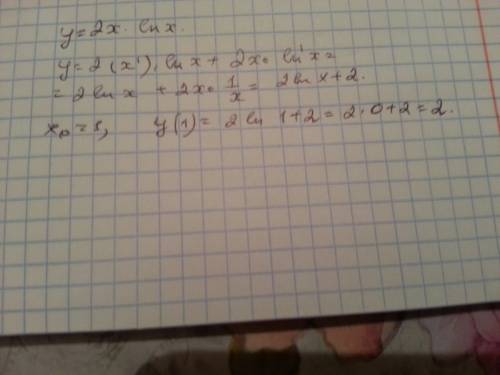 y = 2x · ln x.
y = 2 (x') · ln x + 2x · ln' x =
= 2 ln x + 2x · 1/x = 2 ln x + 2.
x₀ = 1, y(1) = 2 ln 1 + 2 = 2 · 0 + 2 = 2.